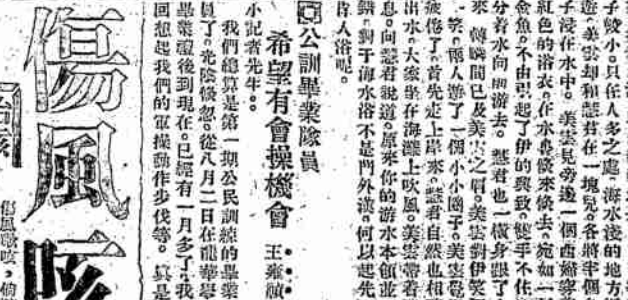 子較小。只在人多之處。海水淺的地方
遊。美雲却和慧君在一塊兒。各將半個
子浸在水中。美雲見旁邊一個西婦穿
紅色的浴衣。在水裏倏來倏去。宛如一
金魚。不由引起了伊的興致。雙手不住
分着水向前游去。慧君也一橫身跟了
來 轉瞬間已及美雲之肩。美雲對伊笑
一笑。兩人游了一個小小圈子。美雲覺
疲倦了。首先走上岸來。慧君自然也相
出水。大家坐在海灘上吹風。美雲帶着
息。向慧君說道。原來你的游水本領並
錯。對于海水浴不是門外漢。何以起先
肯入浴呢。
公訓畢業隊員
希望有會操機會 王雍
小記者先生。。
我們總算是第一期公民訓練的畢業
員了。光陰倏忽。從八月二日在龍華舉
畢業禮後到現在。已經有一月多了。我
回想起我們的軍操動作步伐等。眞是
傷風咳
傷風咳嗽，
治咳